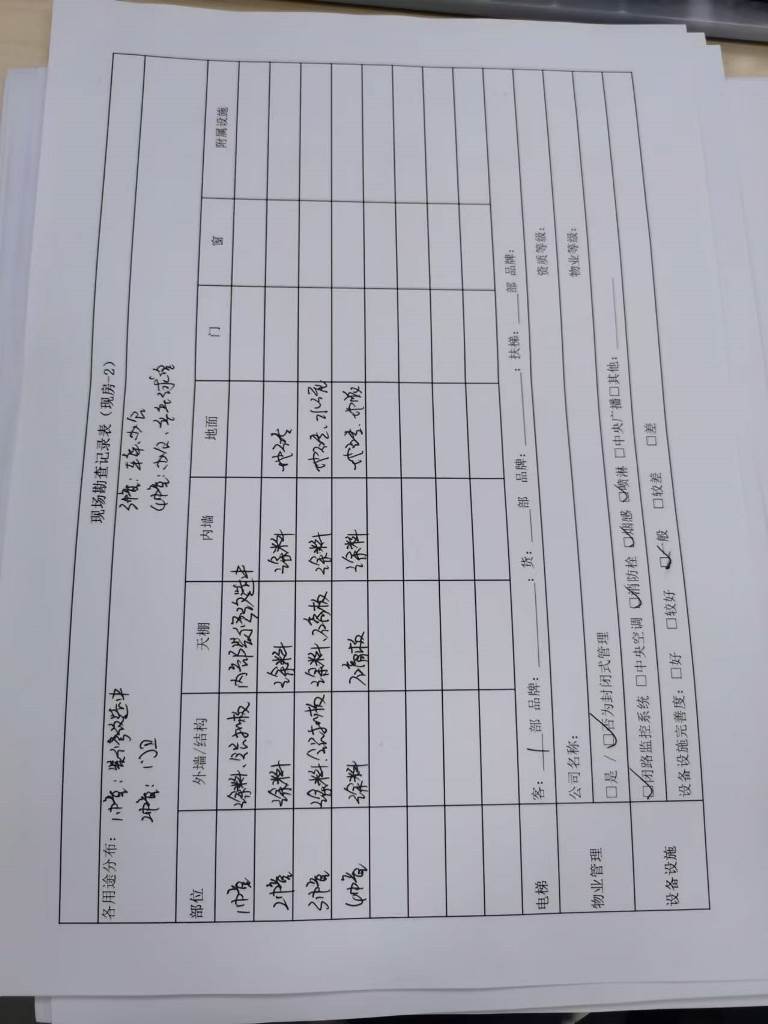 现场勘查记录表（现房-2）
各用途分布： 1幢：装修改造中 3幢：车间、办公
2幢：门卫 4幢：办公、
部位 外墙/结构 天棚 内墙 地面 门 窗 附属设施
1幢 涂料、铝扣板 内部装修改造中
2幢 涂料 涂料 涂料 地砖
3幢 涂料、铝扣板 涂料、石膏板 涂料 地砖、水泥
4幢 涂料 石膏板 涂料 地砖、地板
电梯 客：1部 品牌：______； 货：___部 品牌：______； 扶梯：___部 品牌：
物业管理 公司名称： 资质等级：
□是 / ☑否为封闭式管理 物业等级：
设备设施 ☑闭路监控系统 □中央空调 ☑消防栓 ☑烟感 ☑喷淋 □中央广播 □其他：______
设备设施完善度：□好 □较好 ☑一般 □较差 □差